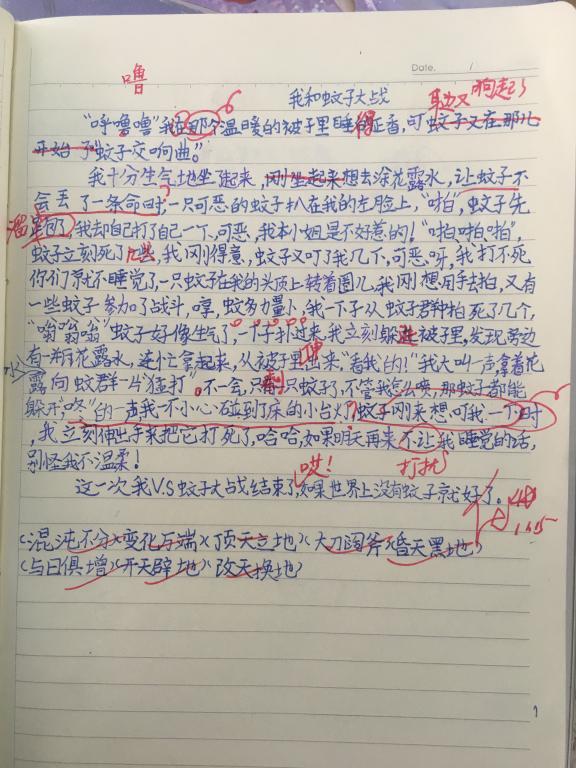 Date. /
噜
我和蚊子大战
耳边又响起了
"呼噜噜"我在那个温暖的被子里睡得正香,可蚊子又在那儿
开始了"蚊子交响曲。"
我十分生气地坐了起来,刚坐起来想去涂花露水,让蚊子不
会丢了一条命时,一只可恶的蚊子扒在我的左脸上,"啪",蚊子先
跑了,我去却自己打了自己一下,可恶,我本小姐是不好惹的!"啪啪啪",
蚊子立刻死了几些,我刚得意,蚊子又叮了我几下,可恶,呀,我打不死
你们就不睡觉了,一只蚊子在我的头顶上转着圈儿,我刚想用手去拍,又有
一些蚊子参加了战斗,哼,蚊多力量小,我一下子从蚊子群种拍死了几个,
"嗡嗡嗡"蚊子好像生气了,一个个扑过来,我立刻躲进被子里,发现旁边
有一瓶花露水,连忙拿起来,从被子里出来,"看我的!"我大叫一声拿着花
露向蚊群一片"猛打"。不一会,只剩只蚊子了,不管我怎么喷,那蚊子都能
躲开"咚"的一声我一不小心碰到了床的小台灯,蚊子刚来想叮我一下时
,我立刻伸出手来把它打死了,哈哈,如果明天再来不让我睡觉的话,
别怪我不温柔!
哎!
打扰
这一次我V.S蚊子大战结束了,如果世界上没有蚊子就好了。
11.15
(混沌不分)(变化万端)(顶天立地)(大刀阔斧)(昏天黑地)
(与日俱增)(开天辟地)(改天换地)